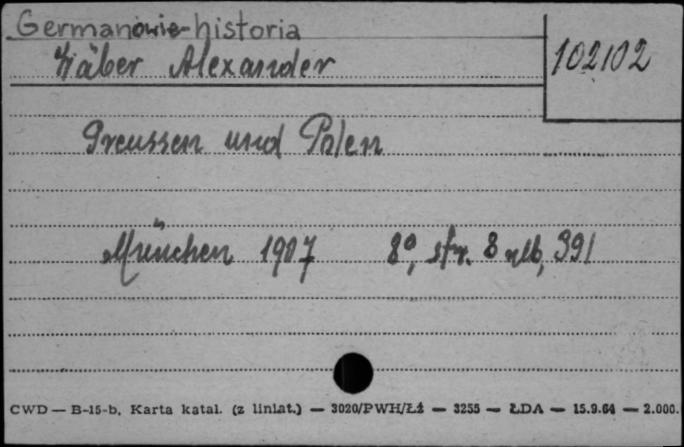 Germanowie-historia
Wäber Alexander
102102
Preussen und Polen
München 1907 8°, str. 8 nlb, 391
CWD — B-15-b. Karta katal. (z liniat.) — 3020/PWH/Łź — 3255 — ŁDA — 15.9.64 — 2.000.